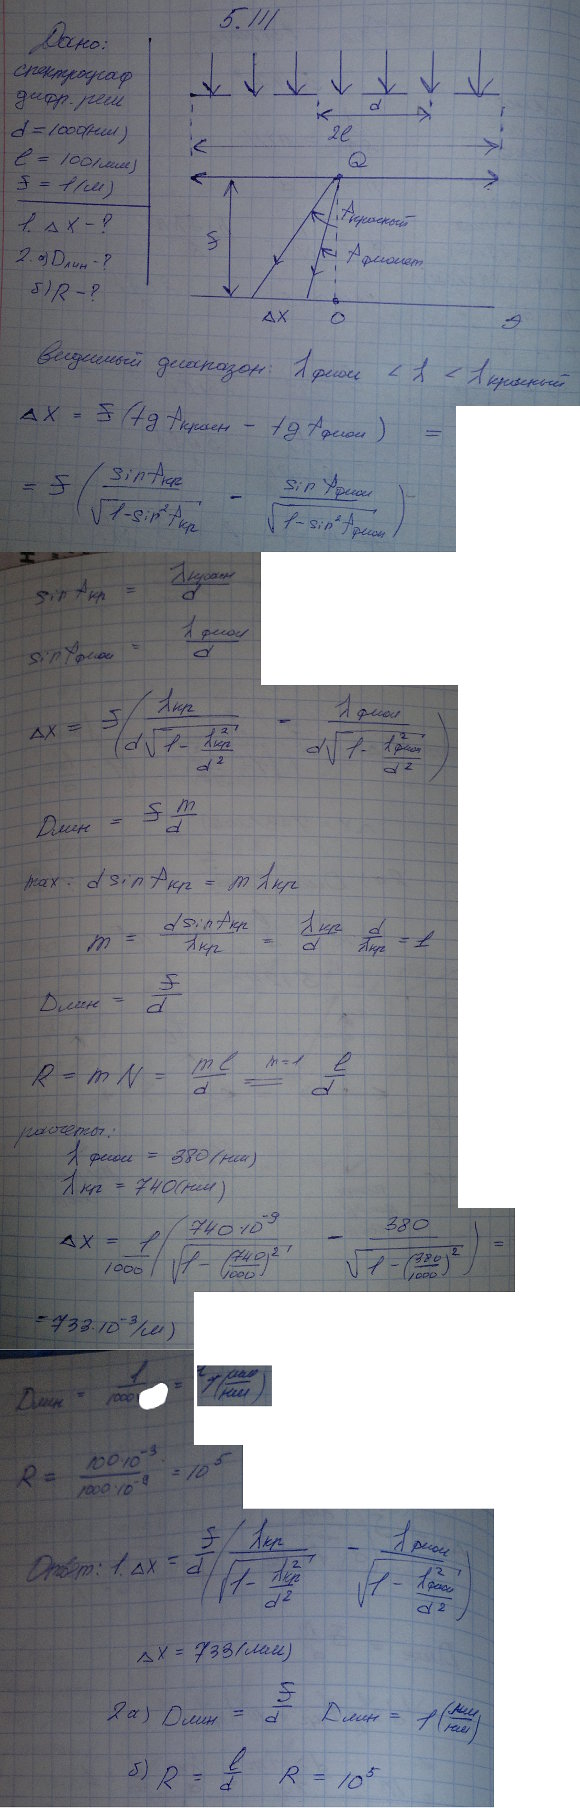 5.III
Дано:
спектрограф
дифр. реш
d = 1000(нм)
l = 100(мм)
F = 1(м)
1. Δx - ?
2. а) Dлин - ?
б) R - ?
d
2l
Q
φкрасный
φфиолет
F
Δx
O
Э
видимый диапазон: λфиол < λ < λкрасный
Δx = F (tg φкрасн - tg φфиол) =
= F (sin φкр / √(1-sin²φкр) - sin φфиол / √(1-sin²φфиол))
sin φкр = λкрасн / d
sin φфиол = λфиол / d
Δx = F (λкр / (d√(1 - λ²кр/d²)) - λфиол / (d√(1 - λ²фиол/d²)))
Dлин = F m/d
max: d sin φкр = m λкр
m = d sin φкр / λкр = λкр/d d/λкр = 1
Dлин = F/d
R = mN = ml/d = m=1 l/d
расчеты:
λфиол = 380(нм)
λкр = 740(нм)
Δx = 1/1000 (740·10⁻⁹ / √(1 - (740/1000)²) - 380 / √(1 - (380/1000)²)) =
= 733·10⁻³(м)
Dлин = 1/1000 = 1 (мм/нм)
R = 100·10⁻³ / 1000·10⁻⁹ = 10⁵
Ответ: 1. Δx = F/d (λкр / √(1 - λ²кр/d²) - λфиол / √(1 - λ²фиол/d²))
Δx = 733(мм)
2а) Dлин = F/d Dлин = 1 (мм/нм)
б) R = l/d R = 10⁵